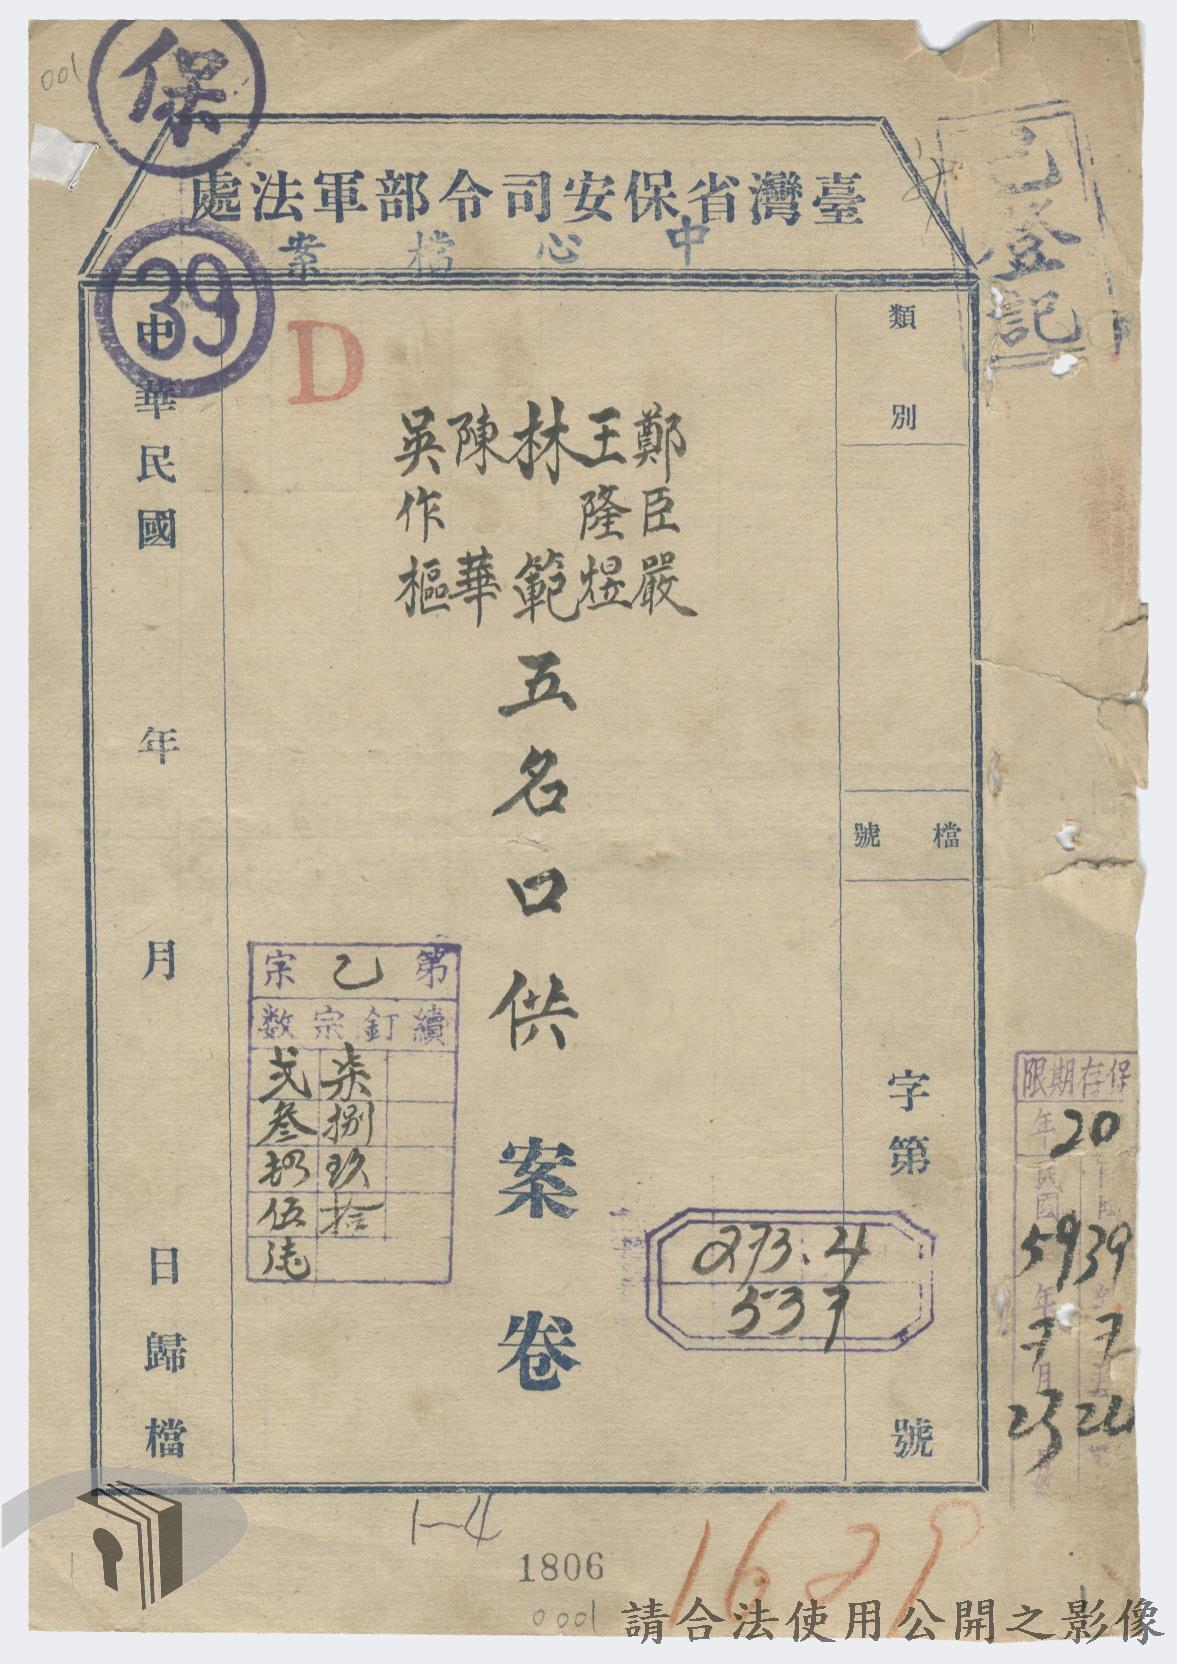 001
保
臺灣省保安司令部軍法處
中心檔案
已登記
39
D
類別
檔號
字第
號
鄭臣嚴
王隆煜
林範
陳華
吳作樞
五名口供案卷
中華民國 年 月 日歸檔
第乙宗
續釘宗数
柒 弍
捌 叁
玖 肆
拾 伍
陸
273.4
537
保存期限
20年
39
7
24
民國59年7月23
1-4
1806
0001
1629
請合法使用公開之影像